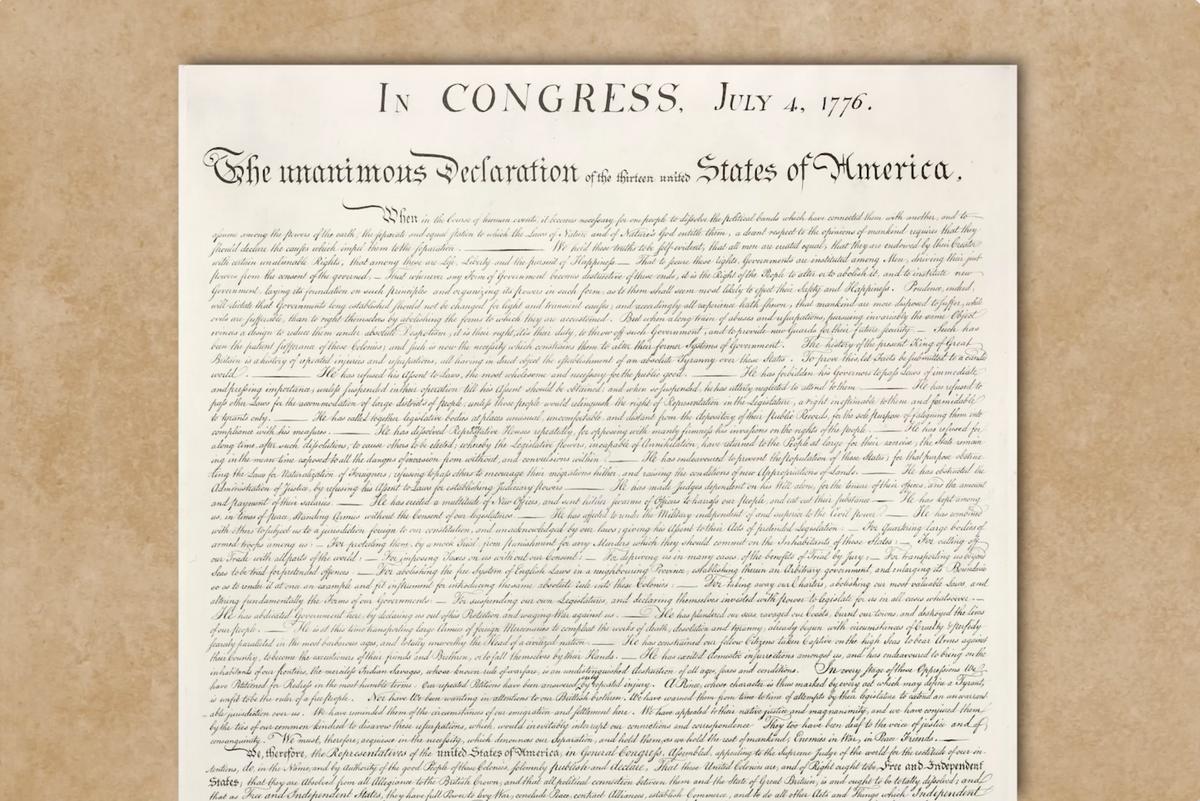 In CONGRESS, July 4, 1776.
The unanimous Declaration of the thirteen united States of America,
When in the Course of human events, it becomes necessary for one people to dissolve the political bands which have connected them with another, and to
assume among the powers of the earth, the separate and equal station to which the Laws of Nature and of Nature's God entitle them, a decent respect to the opinions of mankind requires that they
should declare the causes which impel them to the separation. ——— We hold these truths to be self-evident, that all men are created equal, that they are endowed by their Creator
with certain unalienable Rights, that among these are Life, Liberty and the pursuit of Happiness.— That to secure these rights, Governments are instituted among Men, deriving their just
powers from the consent of the governed,— That whenever any Form of Government becomes destructive of these ends, it is the Right of the People to alter or to abolish it, and to institute new
Government, laying its foundation on such principles and organizing its powers in such form, as to them shall seem most likely to effect their Safety and Happiness. Prudence, indeed,
will dictate that Governments long established should not be changed for light and transient causes; and accordingly all experience hath shewn, that mankind are more disposed to suffer, while
evils are sufferable, than to right themselves by abolishing the forms to which they are accustomed. But when a long train of abuses and usurpations, pursuing invariably the same Object
evinces a design to reduce them under absolute Despotism, it is their right, it is their duty, to throw off such Government, and to provide new Guards for their future security.— Such has
been the patient sufferance of these Colonies; and such is now the necessity which constrains them to alter their former Systems of Government. The history of the present King of Great
Britain is a history of repeated injuries and usurpations, all having in direct object the establishment of an absolute Tyranny over these States. To prove this, let Facts be submitted to a candid
world. ——— He has refused his Assent to Laws, the most wholesome and necessary for the public good. ——— He has forbidden his Governors to pass Laws of immediate
and pressing importance, unless suspended in their operation till his Assent should be obtained; and when so suspended, he has utterly neglected to attend to them. ——— He has refused to
pass other Laws for the accommodation of large districts of people, unless those people would relinquish the right of Representation in the Legislature, a right inestimable to them and formidable
to tyrants only. ——— He has called together legislative bodies at places unusual, uncomfortable, and distant from the depository of their Public Records, for the sole purpose of fatiguing them into
compliance with his measures. ——— He has dissolved Representative Houses repeatedly, for opposing with manly firmness his invasions on the rights of the people. ——— He has refused for
a long time, after such dissolutions, to cause others to be elected; whereby the Legislative powers, incapable of Annihilation, have returned to the People at large for their exercise; the State remain-
ing in the mean time exposed to all the dangers of invasion from without, and convulsions within. ——— He has endeavoured to prevent the population of these States; for that purpose obstruc-
ting the Laws for Naturalization of Foreigners; refusing to pass others to encourage their migrations hither, and raising the conditions of new Appropriations of Lands. ——— He has obstructed the
Administration of Justice, by refusing his Assent to Laws for establishing Judiciary powers. ——— He has made Judges dependent on his Will alone, for the tenure of their offices, and the amount
and payment of their salaries. ——— He has erected a multitude of New Offices, and sent hither swarms of Officers to harrass our people, and eat out their substance. ——— He has kept among
us, in times of peace, Standing Armies without the Consent of our legislatures. ——— He has affected to render the Military independent of and superior to the Civil power. ——— He has combined
with others to subject us to a jurisdiction foreign to our constitution, and unacknowledged by our laws; giving his Assent to their Acts of pretended Legislation: — For Quartering large bodies of
armed troops among us: — For protecting them, by a mock Trial, from punishment for any Murders which they should commit on the Inhabitants of these States: — For cutting off
our Trade with all parts of the world: — For imposing Taxes on us without our Consent: — For depriving us in many cases, of the benefits of Trial by Jury: — For transporting us beyond
Seas to be tried for pretended offences — For abolishing the free System of English Laws in a neighbouring Province, establishing therein an Arbitrary government, and enlarging its Boundaries
so as to render it at once an example and fit instrument for introducing the same absolute rule into these Colonies: — For taking away our Charters, abolishing our most valuable Laws, and
altering fundamentally the Forms of our Governments: — For suspending our own Legislatures, and declaring themselves invested with power to legislate for us in all cases whatsoever.—
He has abdicated Government here, by declaring us out of his Protection and waging War against us. ——— He has plundered our seas, ravaged our Coasts, burnt our towns, and destroyed the lives
of our people. ——— He is at this time transporting large Armies of foreign Mercenaries to compleat the works of death, desolation and tyranny, already begun with circumstances of Cruelty & perfidy
scarcely paralleled in the most barbarous ages, and totally unworthy the Head of a civilized nation. ——— He has constrained our fellow Citizens taken Captive on the high Seas to bear Arms against
their Country, to become the executioners of their friends and Brethren, or to fall themselves by their Hands. ——— He has excited domestic insurrections amongst us, and has endeavoured to bring on the
inhabitants of our frontiers, the merciless Indian Savages, whose known rule of warfare, is an undistinguished destruction of all ages, sexes and conditions. In every stage of these Oppressions We
have Petitioned for Redress in the most humble terms: Our repeated Petitions have been answered only by repeated injury. A Prince, whose character is thus marked by every act which may define a Tyrant,
is unfit to be the ruler of a free people. Nor have We been wanting in attentions to our Brittish brethren. We have warned them from time to time of attempts by their legislature to extend an unwarrant-
able jurisdiction over us. We have reminded them of the circumstances of our emigration and settlement here. We have appealed to their native justice and magnanimity, and we have conjured them
by the ties of our common kindred to disavow these usurpations, which, would inevitably interrupt our connections and correspondence. They too have been deaf to the voice of justice and of
consanguinity. We must, therefore, acquiesce in the necessity, which denounces our Separation, and hold them, as we hold the rest of mankind, Enemies in War, in Peace Friends.———
We, therefore, the Representatives of the united States of America, in General Congress, Assembled, appealing to the Supreme Judge of the world for the rectitude of our in-
tentions, do, in the Name, and by Authority of the good People of these Colonies, solemnly publish and declare, That these United Colonies are, and of Right ought to be Free and Independent
States; that they are Absolved from all Allegiance to the British Crown, and that all political connection between them and the State of Great Britain, is and ought to be totally dissolved; and
that as Free and Independent States, they have full Power to levy War, conclude Peace, contract Alliances, establish Commerce, and to do all other Acts and Things which Independent